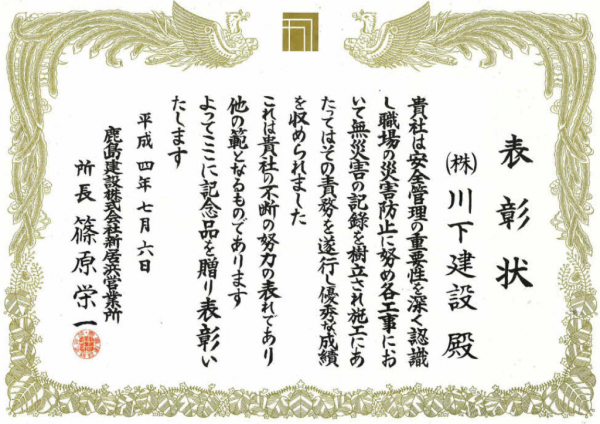 表彰状
(株)川下建設殿
貴社は安全管理の重要性を深く認識
し職場の災害防止に努め各工事にお
いて無災害の記録を樹立され施工にあ
たってはその責務を遂行し優秀な成績
を収められました
これは貴社の不断の努力の表れであり
他の範となるものであります
よってここに記念品を贈り表彰い
たします
平成四年七月六日
鹿島建設株式会社新居浜営業所
所長 篠原栄一